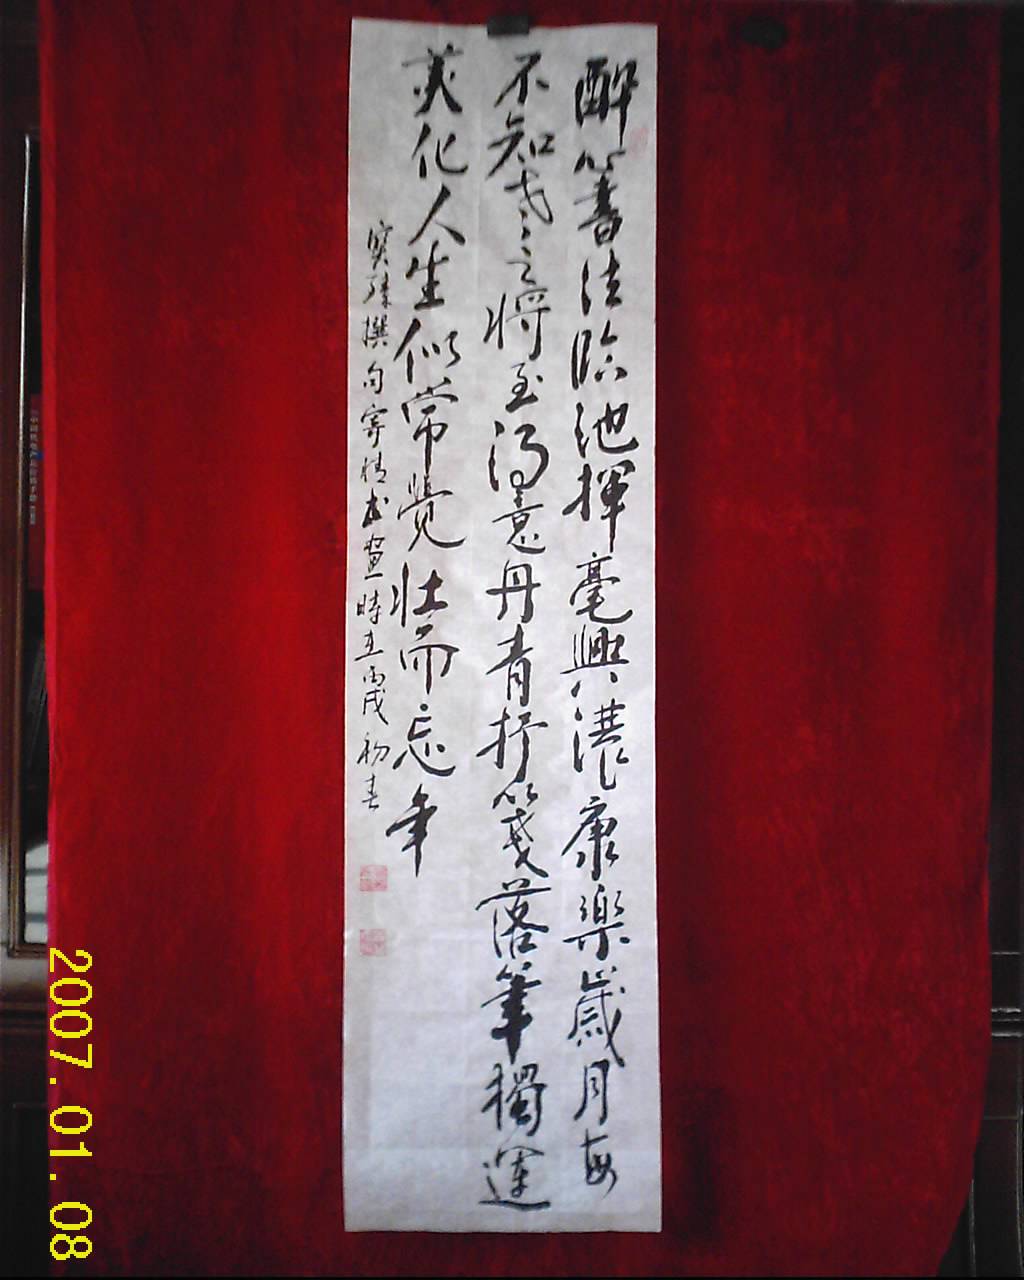 醉書法臨池揮毫興濃康樂歲月每
不知老之將至得意丹青抒箋落筆獨運
美化人生似常覺壯而忘年
寶臻撰句寄情書畫時在丙戌初春
2007.01.08